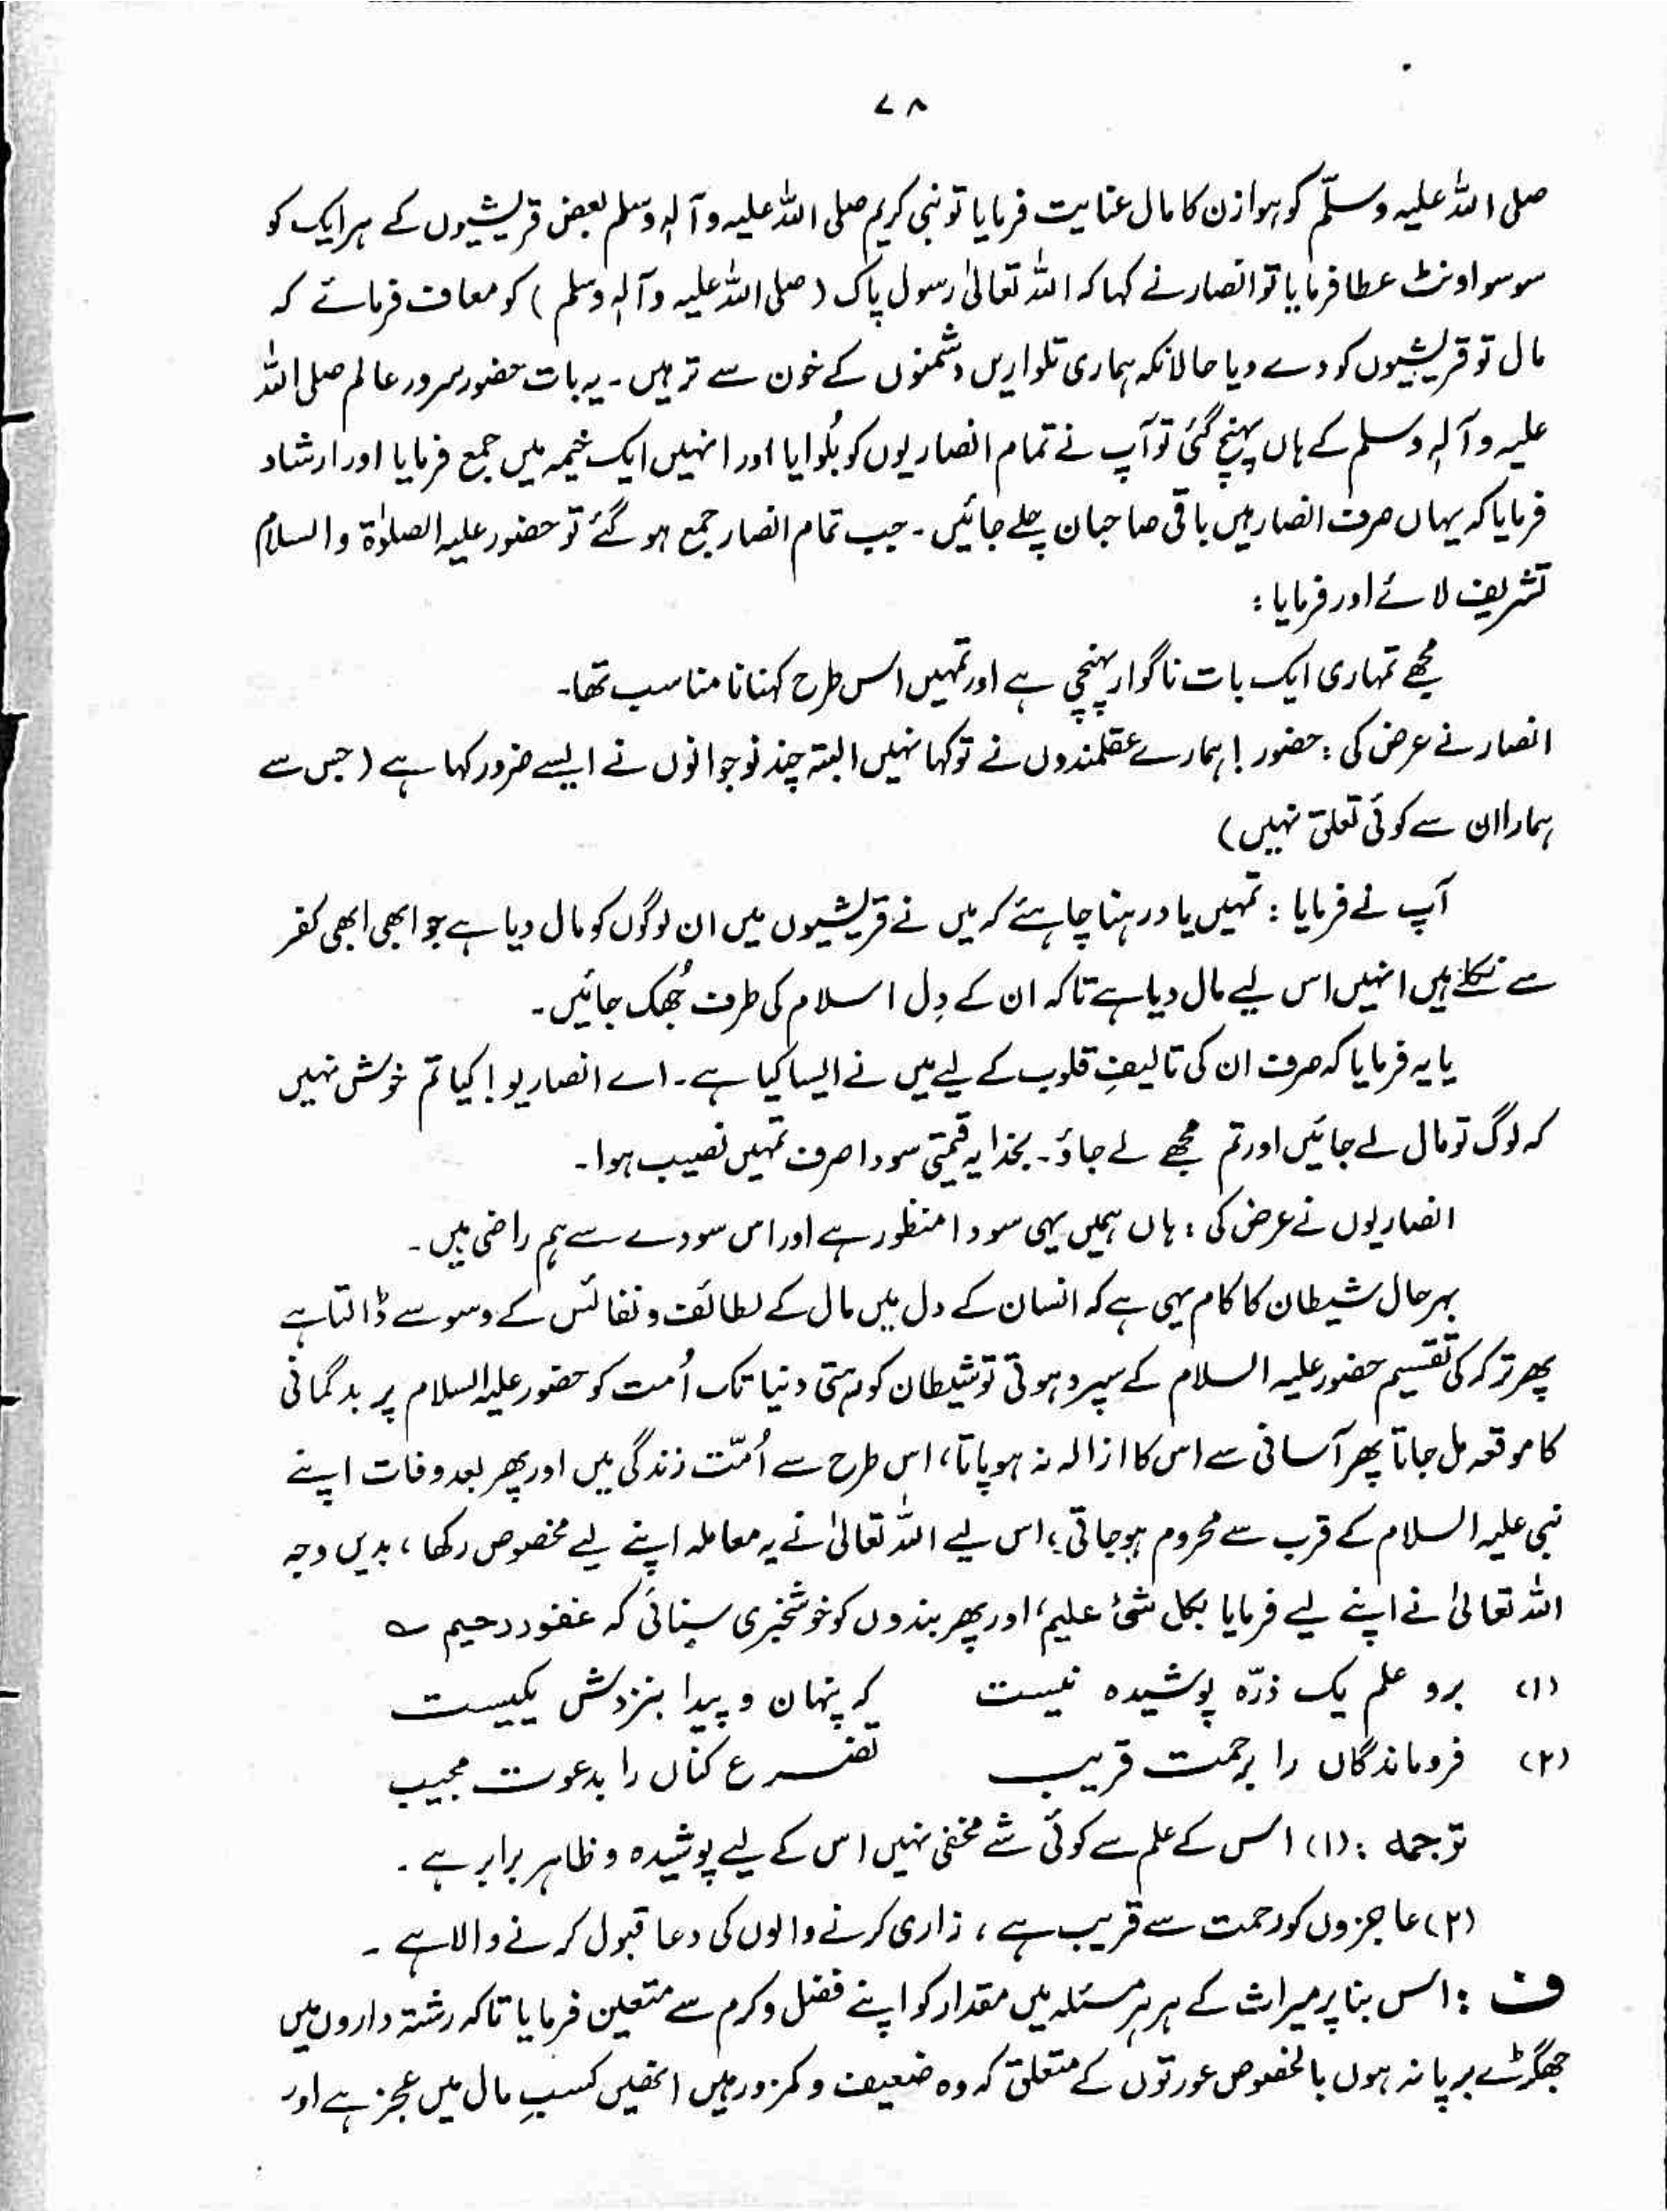 ۷۸
صلی اللہ علیہ وسلّم کو ہوازن کا مال عنایت فرمایا تو نبی کریم صلی اللہ علیہ وآلہٖ وسلم بعض قریشیوں کے ہر ایک کو
سو سو اونٹ عطا فرمایا تو انصار نے کہا کہ اللہ تعالیٰ رسول پاک (صلی اللہ علیہ وآلہٖ وسلم) کو معاف فرمائے کہ
مال تو قریشیوں کو دے دیا حالانکہ ہماری تلواریں دشمنوں کے خون سے تر ہیں۔ یہ بات حضور سرور عالم صلی اللہ
علیہ وآلہٖ وسلم کے ہاں پہنچ گئی تو آپ نے تمام انصاریوں کو بُلوایا اور انہیں ایک خیمہ میں جمع فرمایا اور ارشاد
فرمایا کہ یہاں صرف انصار ہیں باقی صاحبان چلے جائیں۔ جب تمام انصار جمع ہو گئے تو حضور علیہ الصلوٰۃ والسلام
تشریف لائے اور فرمایا :
مجھے تمہاری ایک بات ناگوار پہنچی ہے اور تمہیں اس طرح کہنا نا مناسب تھا۔
انصار نے عرض کی : حضور ! ہمارے عقلمندوں نے تو کہا نہیں البتہ چند نوجوانوں نے ایسے ضرور کہا ہے (جس سے
ہمارا ان سے کوئی تعلق نہیں)
آپ نے فرمایا : تمہیں یاد رہنا چاہئے کہ میں نے قریشیوں میں ان لوگوں کو مال دیا ہے جو ابھی ابھی کفر
سے نکلے ہیں انہیں اس لیے مال دیا ہے تاکہ ان کے دِل اسلام کی طرف جُھک جائیں۔
یا یہ فرمایا کہ صرف ان کی تالیفِ قلوب کے لیے میں نے ایسا کیا ہے۔ اے انصاریو ! کیا تم خوش نہیں
کہ لوگ تو مال لے جائیں اور تم مجھے لے جاؤ۔ بخدا یہ قیمتی سودا صرف تمہیں نصیب ہوا۔
انصاریوں نے عرض کی : ہاں ہمیں یہی سودا منظور ہے اور اس سودے سے ہم راضی ہیں۔
بہرحال شیطان کا کام یہی ہے کہ انسان کے دل میں مال کے لطائف و نفائس کے وسوسے ڈالتا ہے
پھر ترکہ کی تقسیم حضور علیہ السلام کے سپرد ہوتی تو شیطان کو رہتی دنیا تک اُمت کو حضور علیہ السلام پر بدگمانی
کا موقعہ مل جاتا پھر آسانی سے اس کا ازالہ نہ ہو پاتا، اس طرح سے اُمّت زندگی میں اور پھر بعد وفات اپنے
نبی علیہ السلام کے قرب سے محروم ہو جاتی، اس لیے اللہ تعالیٰ نے یہ معاملہ اپنے لیے مخصوص رکھا، بدیں وجہ
اللہ تعالیٰ نے اپنے لیے فرمایا بکل شئ علیم، اور پھر بندوں کو خوشخبری سنائی کہ غفور رحیم ؎
(۱) برو علم یک ذرّہ پوشیدہ نیست کہ پنہان و پیدا بنزدش یکیست
(۲) فروماندگاں را برحمت قریب تضرع کناں را بدعوت مجیب
ترجمہ : (۱) اس کے علم سے کوئی شے مخفی نہیں اس کے لیے پوشیدہ و ظاہر برابر ہے۔
(۲) عاجزوں کو رحمت سے قریب ہے، زاری کرنے والوں کی دعا قبول کرنے والا ہے۔
ف : اس بنا پر میراث کے ہر ہر مسئلہ میں مقدار کو اپنے فضل و کرم سے متعین فرمایا تاکہ رشتہ داروں میں
جھگڑے برپا نہ ہوں بالخصوص عورتوں کے متعلق کہ وہ ضعیف و کمزور ہیں انھیں کسبِ مال میں عجز ہے اور